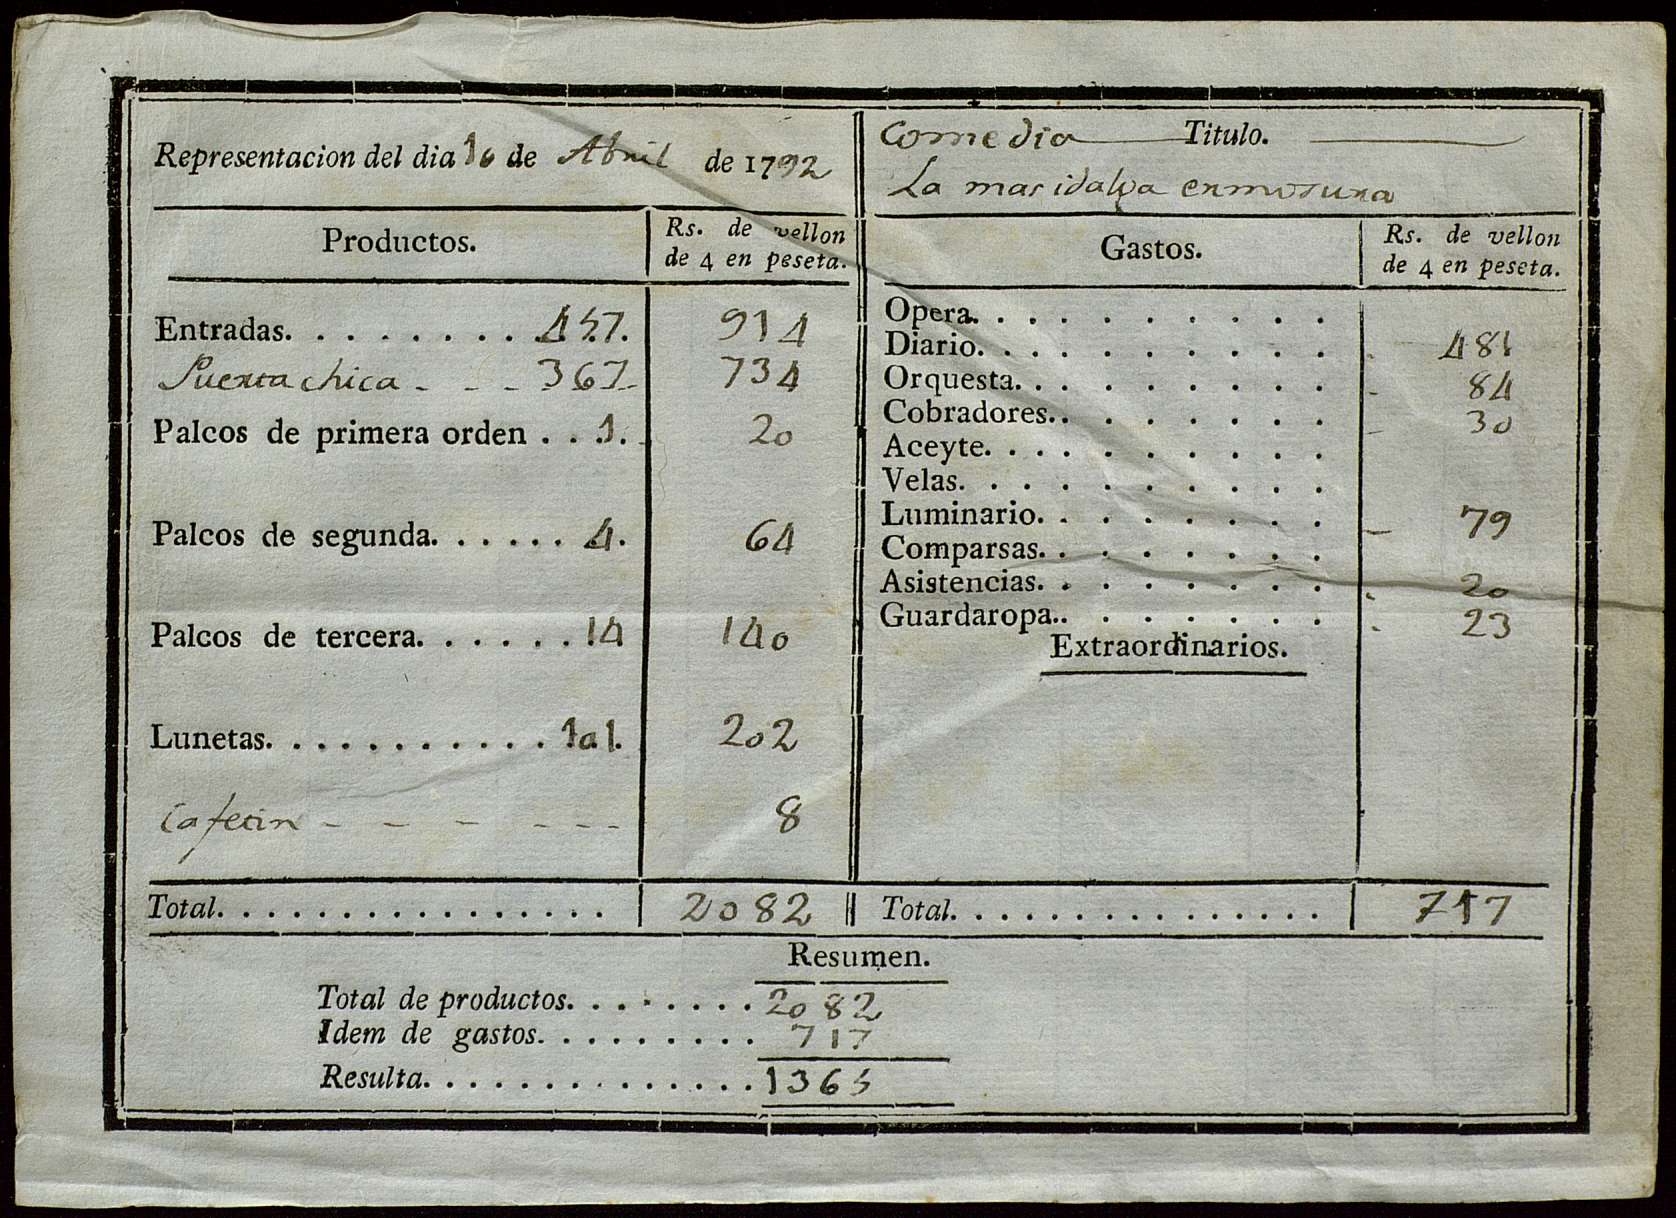 Representacion del dia 16 de Abril de 1792
Productos.
Rs. de vellon
de 4 en peseta.
Entradas. . . . . . . . 457. 914
Puerta chica - - - 367 734
Palcos de primera orden . . 1. 20
Palcos de segunda. . . . . . 4. 64
Palcos de tercera. . . . . . 14 140
Lunetas. . . . . . . . . . . 101. 202
Cafetin - - - - - - 8
Total. . . . . . . . . . . . . . . . 2082
Comedia Titulo.
La mas idalga ermosura
Gastos.
Rs. de vellon
de 4 en peseta.
Opera. . . . . . . . . .
Diario. . . . . . . . . . 481
Orquesta. . . . . . . . . 84
Cobradores. . . . . . . . 30
Aceyte. . . . . . . . . .
Velas. . . . . . . . . . .
Luminario. . . . . . . . 79
Comparsas. . . . . . . .
Asistencias. . . . . . . . 20
Guardaropa.. . . . . . . 23
Extraordinarios.
Total. . . . . . . . . . . . . . . . 717
Resumen.
Total de productos. . . . . . . . 2082
Idem de gastos. . . . . . . . . . 717
Resulta. . . . . . . . . . . . . . . 1365